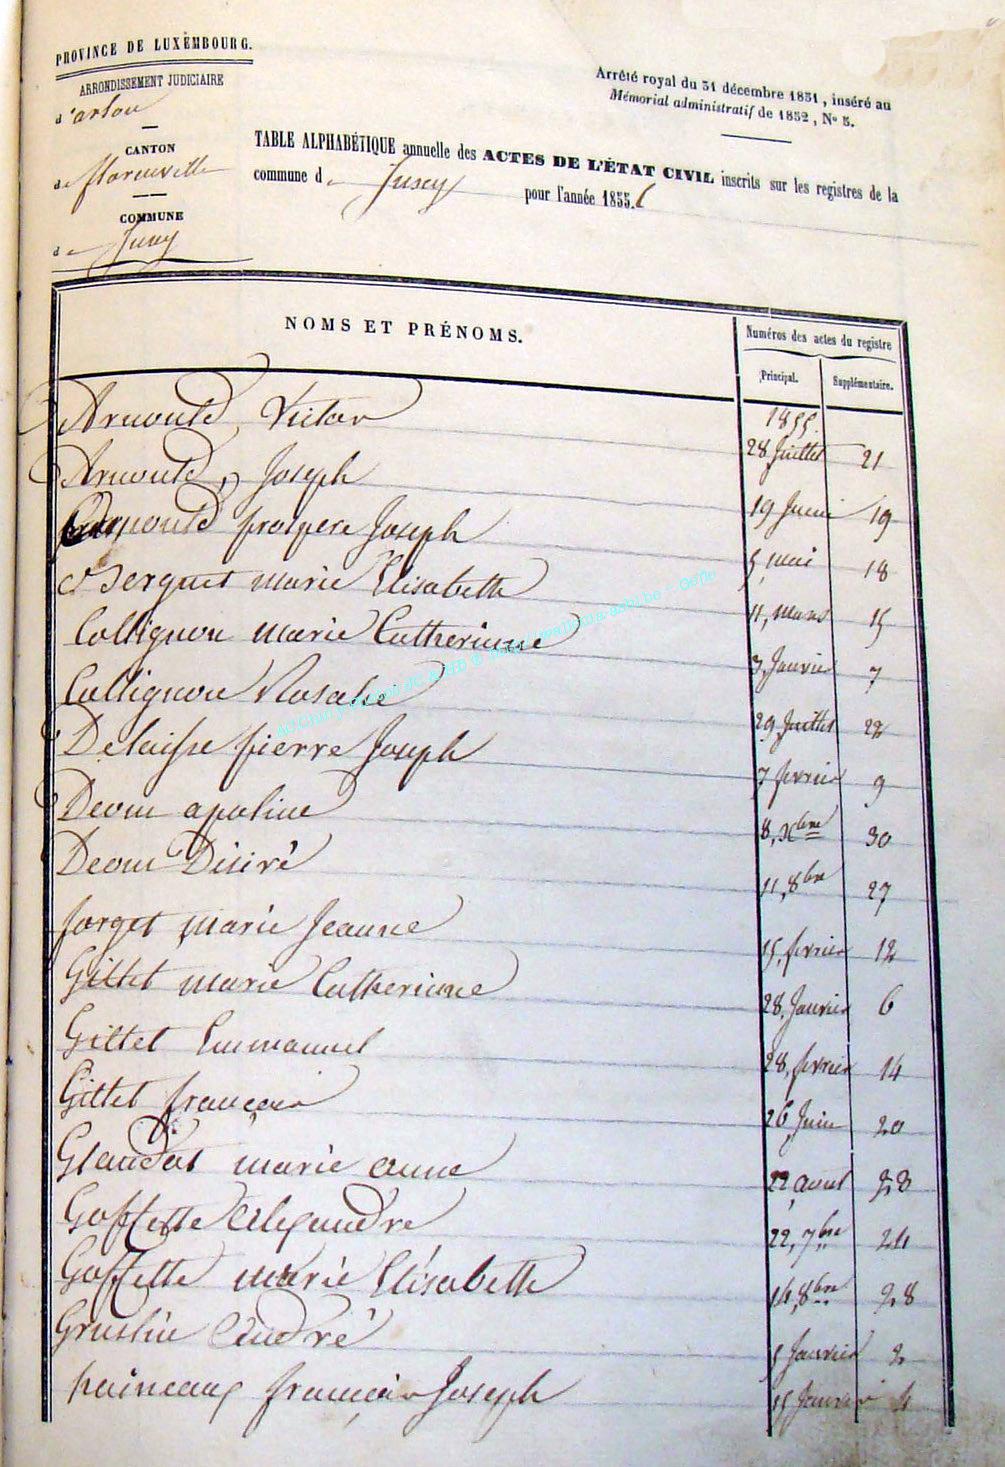 PROVINCE DE LUXEMBOURG.
ARRONDISSEMENT JUDICIAIRE
d'arlon
CANTON
de florenville
COMMUNE
de
Arrêté royal du 31 décembre 1831, inséré au
Mémorial administratif de 1832, N° 5.
TABLE ALPHABÉTIQUE annuelle des ACTES DE L'ÉTAT CIVIL inscrits sur les registres de la
commune de pour l'année 1855.
NOMS ET PRÉNOMS.
Numéros des actes du registre
Principal. Supplémentaire.
1855.
Arnould, Victor 28 Juillet 21
Arnould, Joseph 19 Juin 19
Arnould prospere Joseph 5, mai 18
Berguet marie Elisabetth 11, mars 15
Collignon marie Catherinne 3, Janvier 7
Collignon Rosalie 29, Juillet 22
Delaisse pierre Joseph 7 fevrier 9
Deom apoline 8, Xbre 30
Deom Désiré 11, 8bre 27
forget marie Jeanne 15, fevrier 12
Gillet marie Catherinne 28, Janvier 6
Gillet Emmanuel 28, fevrier 14
Gillet françois 26, Juin 20
Glaudot marie anne 22, aout 23
Goffette Alexandre 22, 7bre 24
Goffette marie Elisabetth 14, 8bre 28
Gruslin André 5 Janvier 2
haineaux françois Joseph 15 Janvier 4